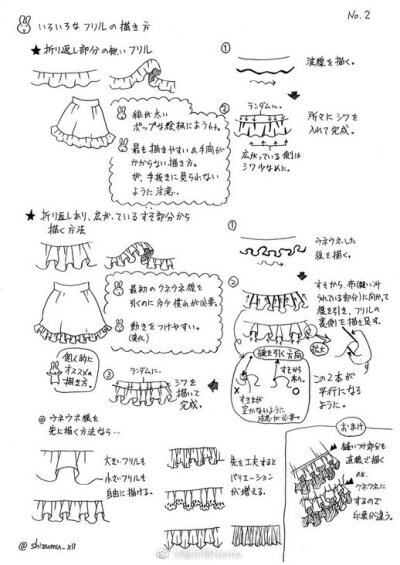 No.2
いろいろなフリルの描き方
★折り返し部分の無いフリル
①
波線を描く。
線が太い
ポップな絵柄にようんよ。
最も描きやすい&手間が
かからない描き方。
が、手抜きに見られない
ように注意…
②
ランダムに。
所々にシワを
入れて完成。
広がっている側は
シワ少なめに。
★折り返しあり、広がっているすそ部分から
描く方法
①
ウネウネした
線を描く。
最初のウネウネ線を
引くのに少々慣れが必要。
動きをつけやすい。
②
すそから、布
に向かって
線を引き、フリルの
裏側を描き足す。
線を引く方向
拡大
すそから
すきまが
空かないように
注意が必要。
この2本が
平行になる
ように。
個人的に
オススメな
描き方。
③
ランダムに…
シワを
描いて
完成。
@ウネウネ線を
先に描く方法なら…
大きいフリルも
小さいフリルも
自由に描ける。
先を工夫すると
バリエーション
が増える。
おまけ
縫いつけ部分も
直線で描く
ウネウネに
するので
印象が違う。
@shizumu_xii